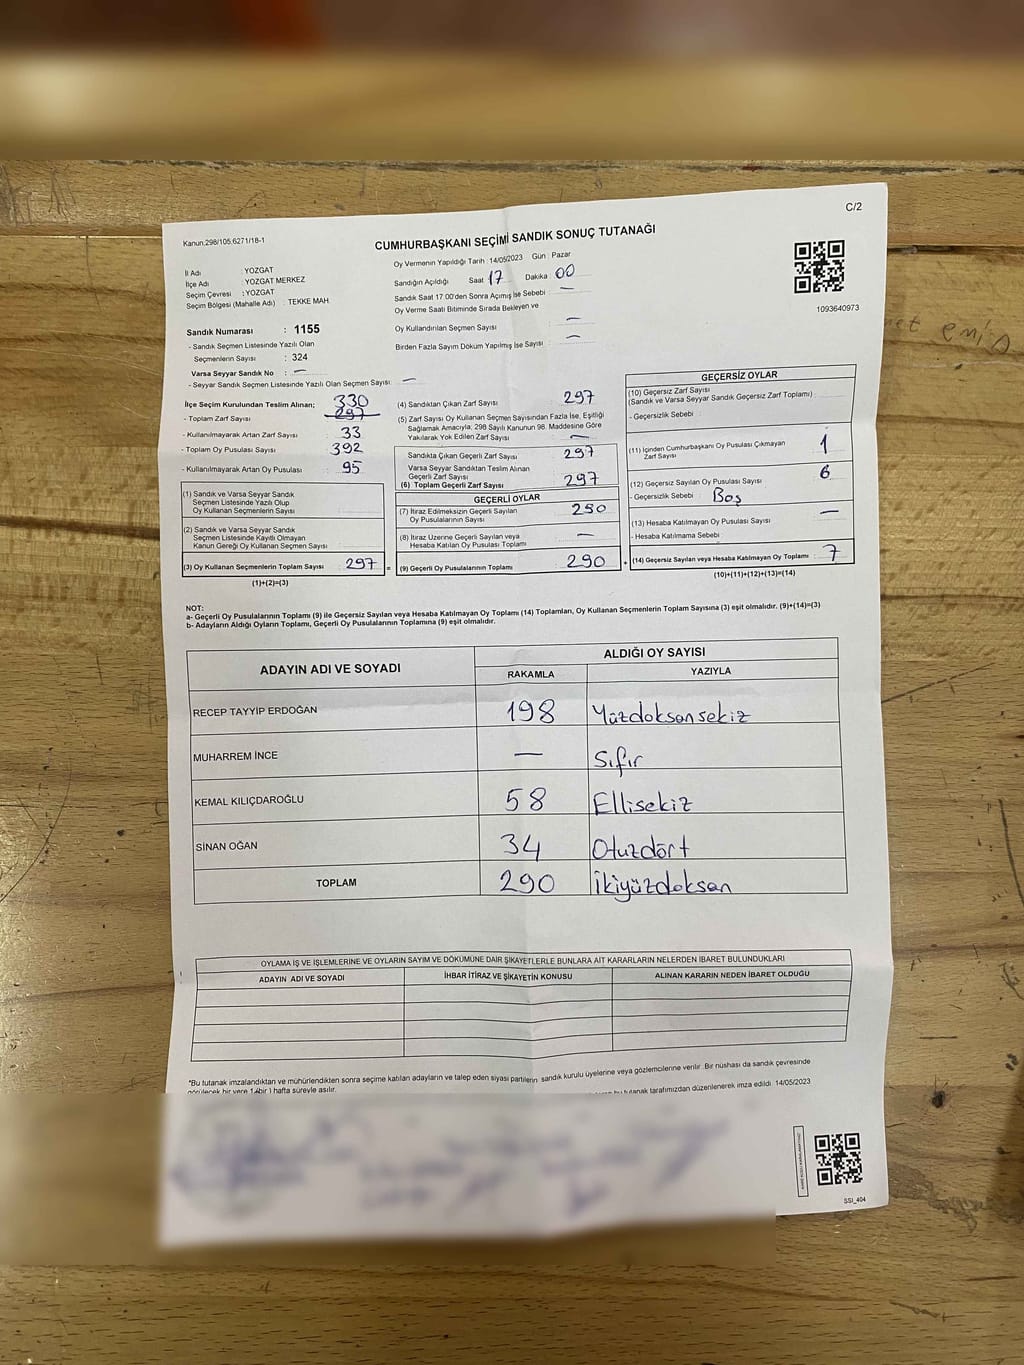 C/2
Kanun.298/105.6271/18-1
CUMHURBAŞKANI SEÇİMİ SANDIK SONUÇ TUTANAĞI
İl Adı : YOZGAT
İlçe Adı : YOZGAT MERKEZ
Seçim Çevresi : YOZGAT
Seçim Bölgesi (Mahalle Adı) : TEKKE MAH.
Sandık Numarası : 1155
- Sandık Seçmen Listesinde Yazılı Olan
Seçmenlerin Sayısı : 324
Varsa Seyyar Sandık No : —
- Seyyar Sandık Seçmen Listesinde Yazılı Olan Seçmen Sayısı: —
Oy Vermenin Yapıldığı Tarih : 14/05/2023 Gün : Pazar
Sandığın Açıldığı Saat 17 Dakika 00
Sandık Saat 17:00'den Sonra Açımış İse Sebebi : —
Oy Verme Saati Bitiminde Sırada Bekleyen ve
Oy Kullandırılan Seçmen Sayısı : —
Birden Fazla Sayım Döküm Yapılmış İse Sayısı : —
1093640973
İlçe Seçim Kurulundan Teslim Alınan; 330
- Toplam Zarf Sayısı : 297
- Kullanılmayarak Artan Zarf Sayısı : 33
- Toplam Oy Pusulası Sayısı : 392
- Kullanılmayarak Artan Oy Pusulası : 95
(1) Sandık ve Varsa Seyyar Sandık
Seçmen Listesinde Yazılı Olup
Oy Kullanan Seçmenlerin Sayısı :
(2) Sandık ve Varsa Seyyar Sandık
Seçmen Listesinde Kayıtlı Olmayan
Kanun Gereği Oy Kullanan Seçmen Sayısı :
(3) Oy Kullanan Seçmenlerin Toplam Sayısı : 297 =
(1)+(2)=(3)
(4) Sandıktan Çıkan Zarf Sayısı : 297
(5) Zarf Sayısı Oy Kullanan Seçmen Sayısından Fazla İse, Eşitliği
Sağlamak Amacıyla; 298 Sayılı Kanunun 98. Maddesine Göre
Yakılarak Yok Edilen Zarf Sayısı : —
Sandıkta Çıkan Geçerli Zarf Sayısı : 297
Varsa Seyyar Sandıktan Teslim Alınan
Geçerli Zarf Sayısı :
(6) Toplam Geçerli Zarf Sayısı : 297
GEÇERLİ OYLAR
(7) İtiraz Edilmeksizin Geçerli Sayılan
Oy Pusulalarının Sayısı : 290
(8) İtiraz Üzerine Geçerli Sayılan veya
Hesaba Katılan Oy Pusulası Toplamı : —
(9) Geçerli Oy Pusulalarının Toplamı : 290 +
GEÇERSİZ OYLAR
(10) Geçersiz Zarf Sayısı
(Sandık ve Varsa Seyyar Sandık Geçersiz Zarf Toplamı) :
- Geçersizlik Sebebi :
(11) İçinden Cumhurbaşkanı Oy Pusulası Çıkmayan
Zarf Sayısı : 1
(12) Geçersiz Sayılan Oy Pusulası Sayısı : 6
- Geçersizlik Sebebi : Boş
(13) Hesaba Katılmayan Oy Pusulası Sayısı : —
- Hesaba Katılmama Sebebi :
(14) Geçersiz Sayılan veya Hesaba Katılmayan Oy Toplamı : 7
(10)+(11)+(12)+(13)=(14)
NOT:
a- Geçerli Oy Pusulalarının Toplamı (9) ile Geçersiz Sayılan veya Hesaba Katılmayan Oy Toplamı (14) Toplamları, Oy Kullanan Seçmenlerin Toplam Sayısına (3) eşit olmalıdır. (9)+(14)=(3)
b- Adayların Aldığı Oyların Toplamı, Geçerli Oy Pusulalarının Toplamına (9) eşit olmalıdır.
ADAYIN ADI VE SOYADI ALDIĞI OY SAYISI
RAKAMLA YAZIYLA
RECEP TAYYİP ERDOĞAN 198 Yüzdoksansekiz
MUHARREM İNCE — Sıfır
KEMAL KILIÇDAROĞLU 58 Ellisekiz
SİNAN OĞAN 34 Otuzdört
TOPLAM 290 İkiyüzdoksan
OYLAMA İŞ VE İŞLEMLERİNE VE OYLARIN SAYIM VE DÖKÜMÜNE DAİR ŞİKAYETLERLE BUNLARA AİT KARARLARIN NELERDEN İBARET BULUNDUKLARI
ADAYIN ADI VE SOYADI İHBAR İTİRAZ VE ŞİKAYETİN KONUSU ALINAN KARARIN NEDEN İBARET OLDUĞU
*Bu tutanak imzalandıktan ve mühürlendikten sonra seçime katılan adayların ve talep eden siyasi partilerin sandık kurulu üyelerine veya gözlemcilerine verilir. Bir nüshası da sandık çevresinde
görülecek bir yere 1 (bir) hafta süreyle asılır.
bu tutanak tarafımızdan düzenlenerek imza edildi 14/05/2023
SSI_404